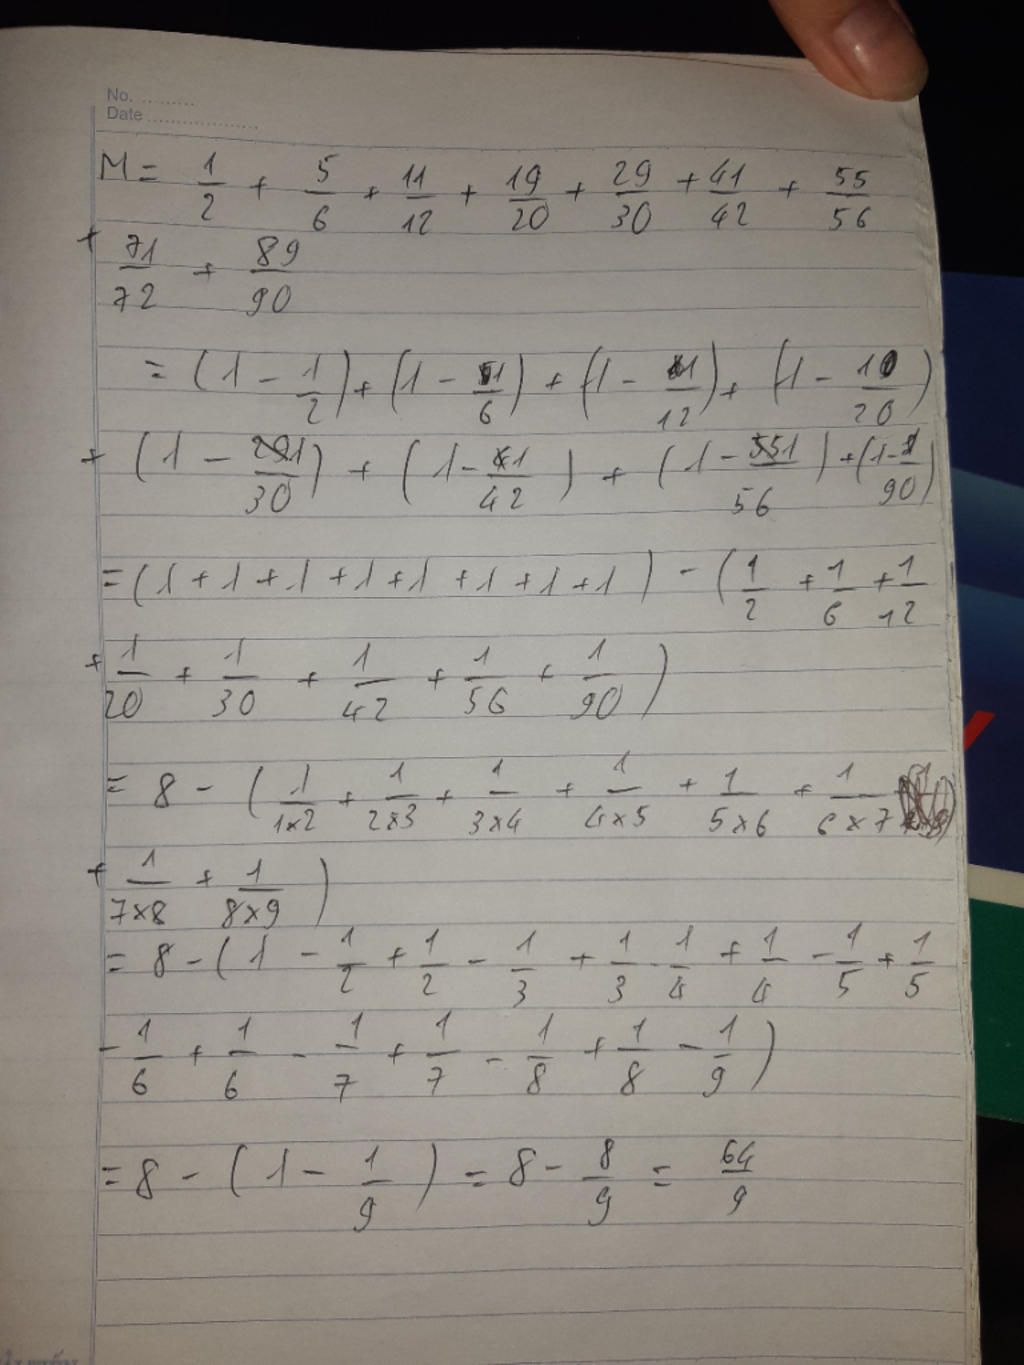 No. .........
Date ..................
M = 1/2 + 5/6 + 11/12 + 19/20 + 29/30 + 41/42 + 55/56
+ 71/72 + 89/90
= (1 - 1/2) + (1 - 1/6) + (1 - 1/12) + (1 - 1/20)
+ (1 - 1/30) + (1 - 1/42) + (1 - 1/56) + (1 - 1/90)
= (1 + 1 + 1 + 1 + 1 + 1 + 1 + 1) - (1/2 + 1/6 + 1/12
+ 1/20 + 1/30 + 1/42 + 1/56 + 1/90)
= 8 - (1/1×2 + 1/2×3 + 1/3×4 + 1/4×5 + 1/5×6 + 1/6×7
+ 1/7×8 + 1/8×9)
= 8 - (1 - 1/2 + 1/2 - 1/3 + 1/3 - 1/4 + 1/4 - 1/5 + 1/5
- 1/6 + 1/6 - 1/7 + 1/7 - 1/8 + 1/8 - 1/9)
= 8 - (1 - 1/9) = 8 - 8/9 = 64/9